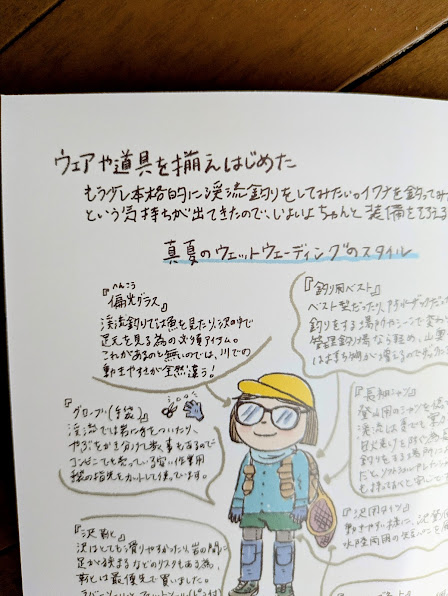 ウェアや道具を揃えはじめた
もう少し本格的に渓流釣りをしてみたい。イワナを釣ってみ
という気持ちが出てきたので、いよいよちゃんと装備を
真夏のウェットウェーディングのスタイル
へんこう
『偏光グラス』
渓流釣りでは魚を見たり、沢の中で
足元を見る為の必須アイテム。
これがあるのと無いのでは、川での
動きやすさが全然違う!
『釣り用ベスト』
ベスト型だったり、
釣りをする場所やシーンで変わ
管理釣り場なら軽め、山里
『グローブ(手袋)』
渓流では岩に手をついたり、
やぶをかき分けて歩く事もあるので
コンビニでも売っている安い作業用
の指先をカットして使っています。
『長袖シャツ』
登山用のシャツを
渓流は夏でも
釣りをする場所に
『沢用タイツ』
動きやすい様に、
水陸両用の
『沢靴』
沢はとても滑りやすかったり、岩の間に
足が挟まるなどのリスクもある為、
靴は最優先で買いました。